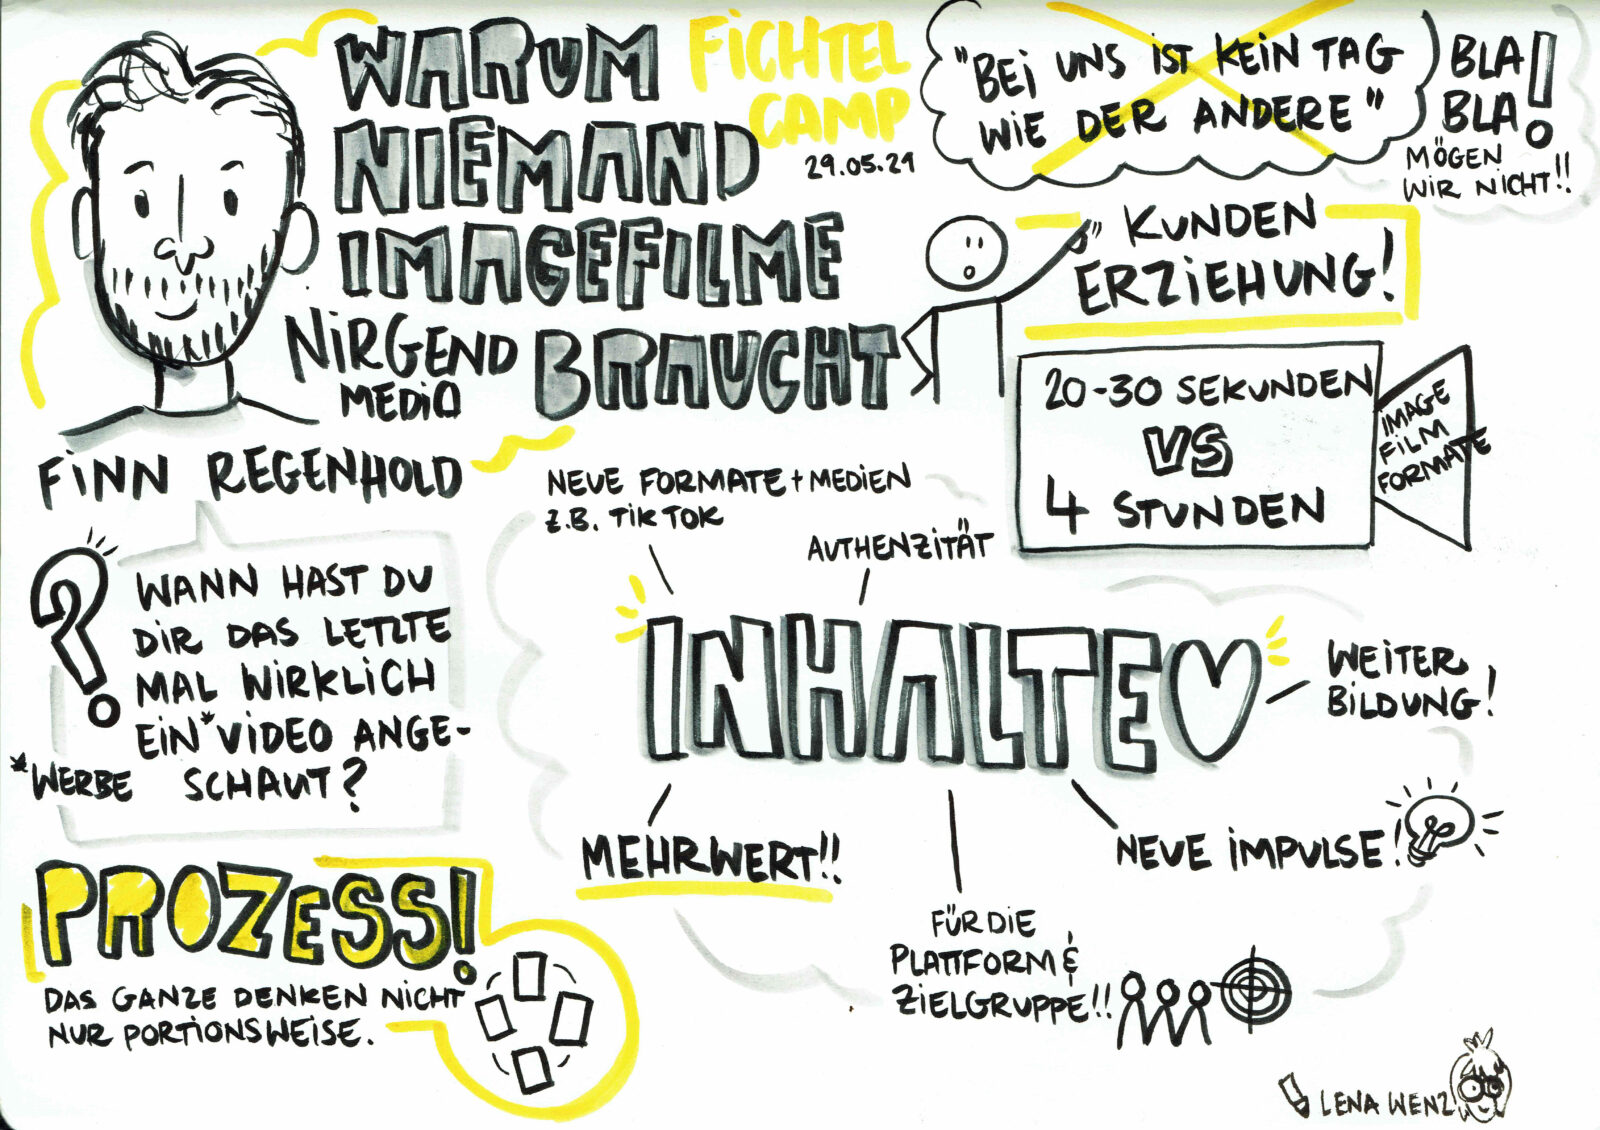 WARUM
NIEMAND
IMAGEFILME
BRAUCHT
FICHTEL
CAMP
29.05.21
"BEI UNS IST KEIN TAG
WIE DER ANDERE"
BLA
BLA!
MÖGEN
WIR NICHT!!
NIRGEND
MEDIA
FINN REGENHOLD
KUNDEN
ERZIEHUNG!
20-30 SEKUNDEN
VS
4 STUNDEN
IMAGE
FILM
FORMATE
?
WANN HAST DU
DIR DAS LETZTE
MAL WIRKLICH
EIN* VIDEO ANGE-
SCHAUT?
*WERBE
NEUE FORMATE + MEDIEN
Z.B. TIKTOK
AUTHENZITÄT
INHALTE
WEITER
BILDUNG!
MEHRWERT!!
NEUE IMPULSE!
FÜR DIE
PLATTFORM &
ZIELGRUPPE!!
PROZESS!
DAS GANZE DENKEN NICHT
NUR PORTIONSWEISE.
LENA WENZ